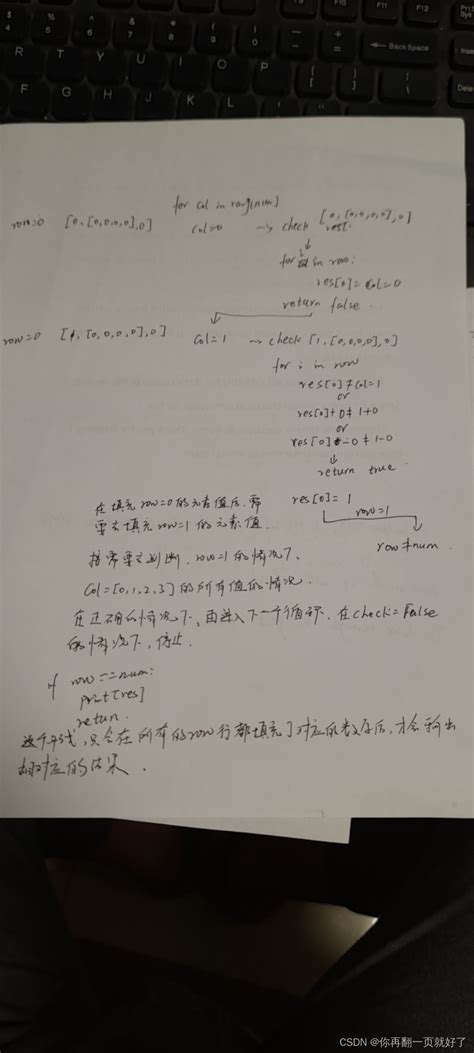 for col in rang(num)
row=0 [0,[0,0,0,0],0] Col=0 → check [0,[0,0,0,0],0]
rest.
for in row:
res[0]= Col=0
return false.
row=0 [1,[0,0,0,0],0] Col=1 → check [1,[0,0,0,0],0]
for i in row
res[0]≠Col=1
or
res[0]+0≠1+0
or
res[0]-0≠1-0
return true.
res[0]=1
row=1
row≠num.
在填充row=0的元素值后,需
要去填充row=1的元素值.
接着要去判断,row=1的情况下、
Col=[0,1,2,3]的所有值的情况.
在正确的情况下,再进入下一个循环.在check=False
的情况下,停止.
if row==num:
print[res]
return.
只会在所有的row行都填充了对应的数字后,才会输出
对应的结果.
Back Space
Delete
F6
F7
F8
F9
F10
F11
F12
R T Y U I O P
CSDN @你再翻一页就好了